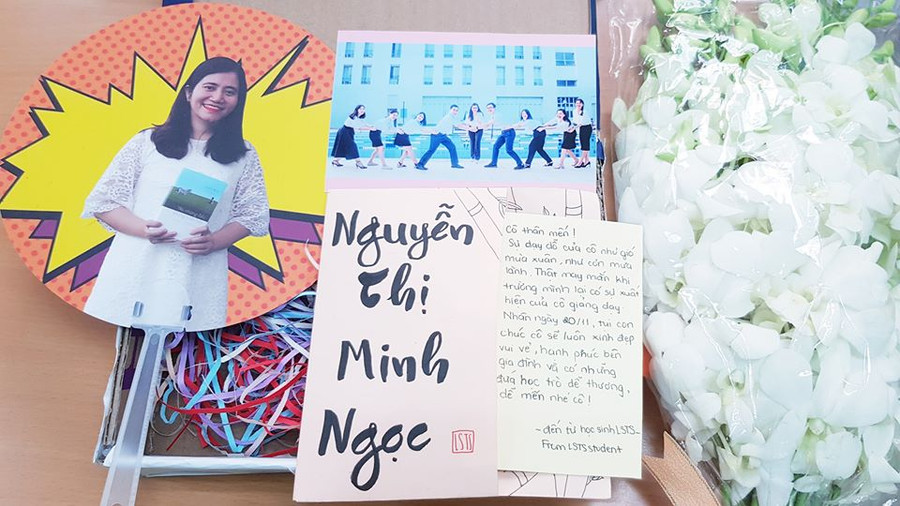 Nguyễn
Thị
Minh
Ngọc
LSTS
Cô thân mến!
Sự dạy dỗ của cô như gió
mùa xuân, như cơn mưa
lành. Thật may mắn khi
trường mình lại có sự xuất
hiện của cô giảng dạy
Nhân ngày 20/11, tụi con
chúc cô sẽ luôn xinh đẹp
vui vẻ, hạnh phúc bên
gia đình và có những
đứa học trò dễ thương,
dễ mến nhé cô!
-đến từ học sinh LSTS-
From LSTS student